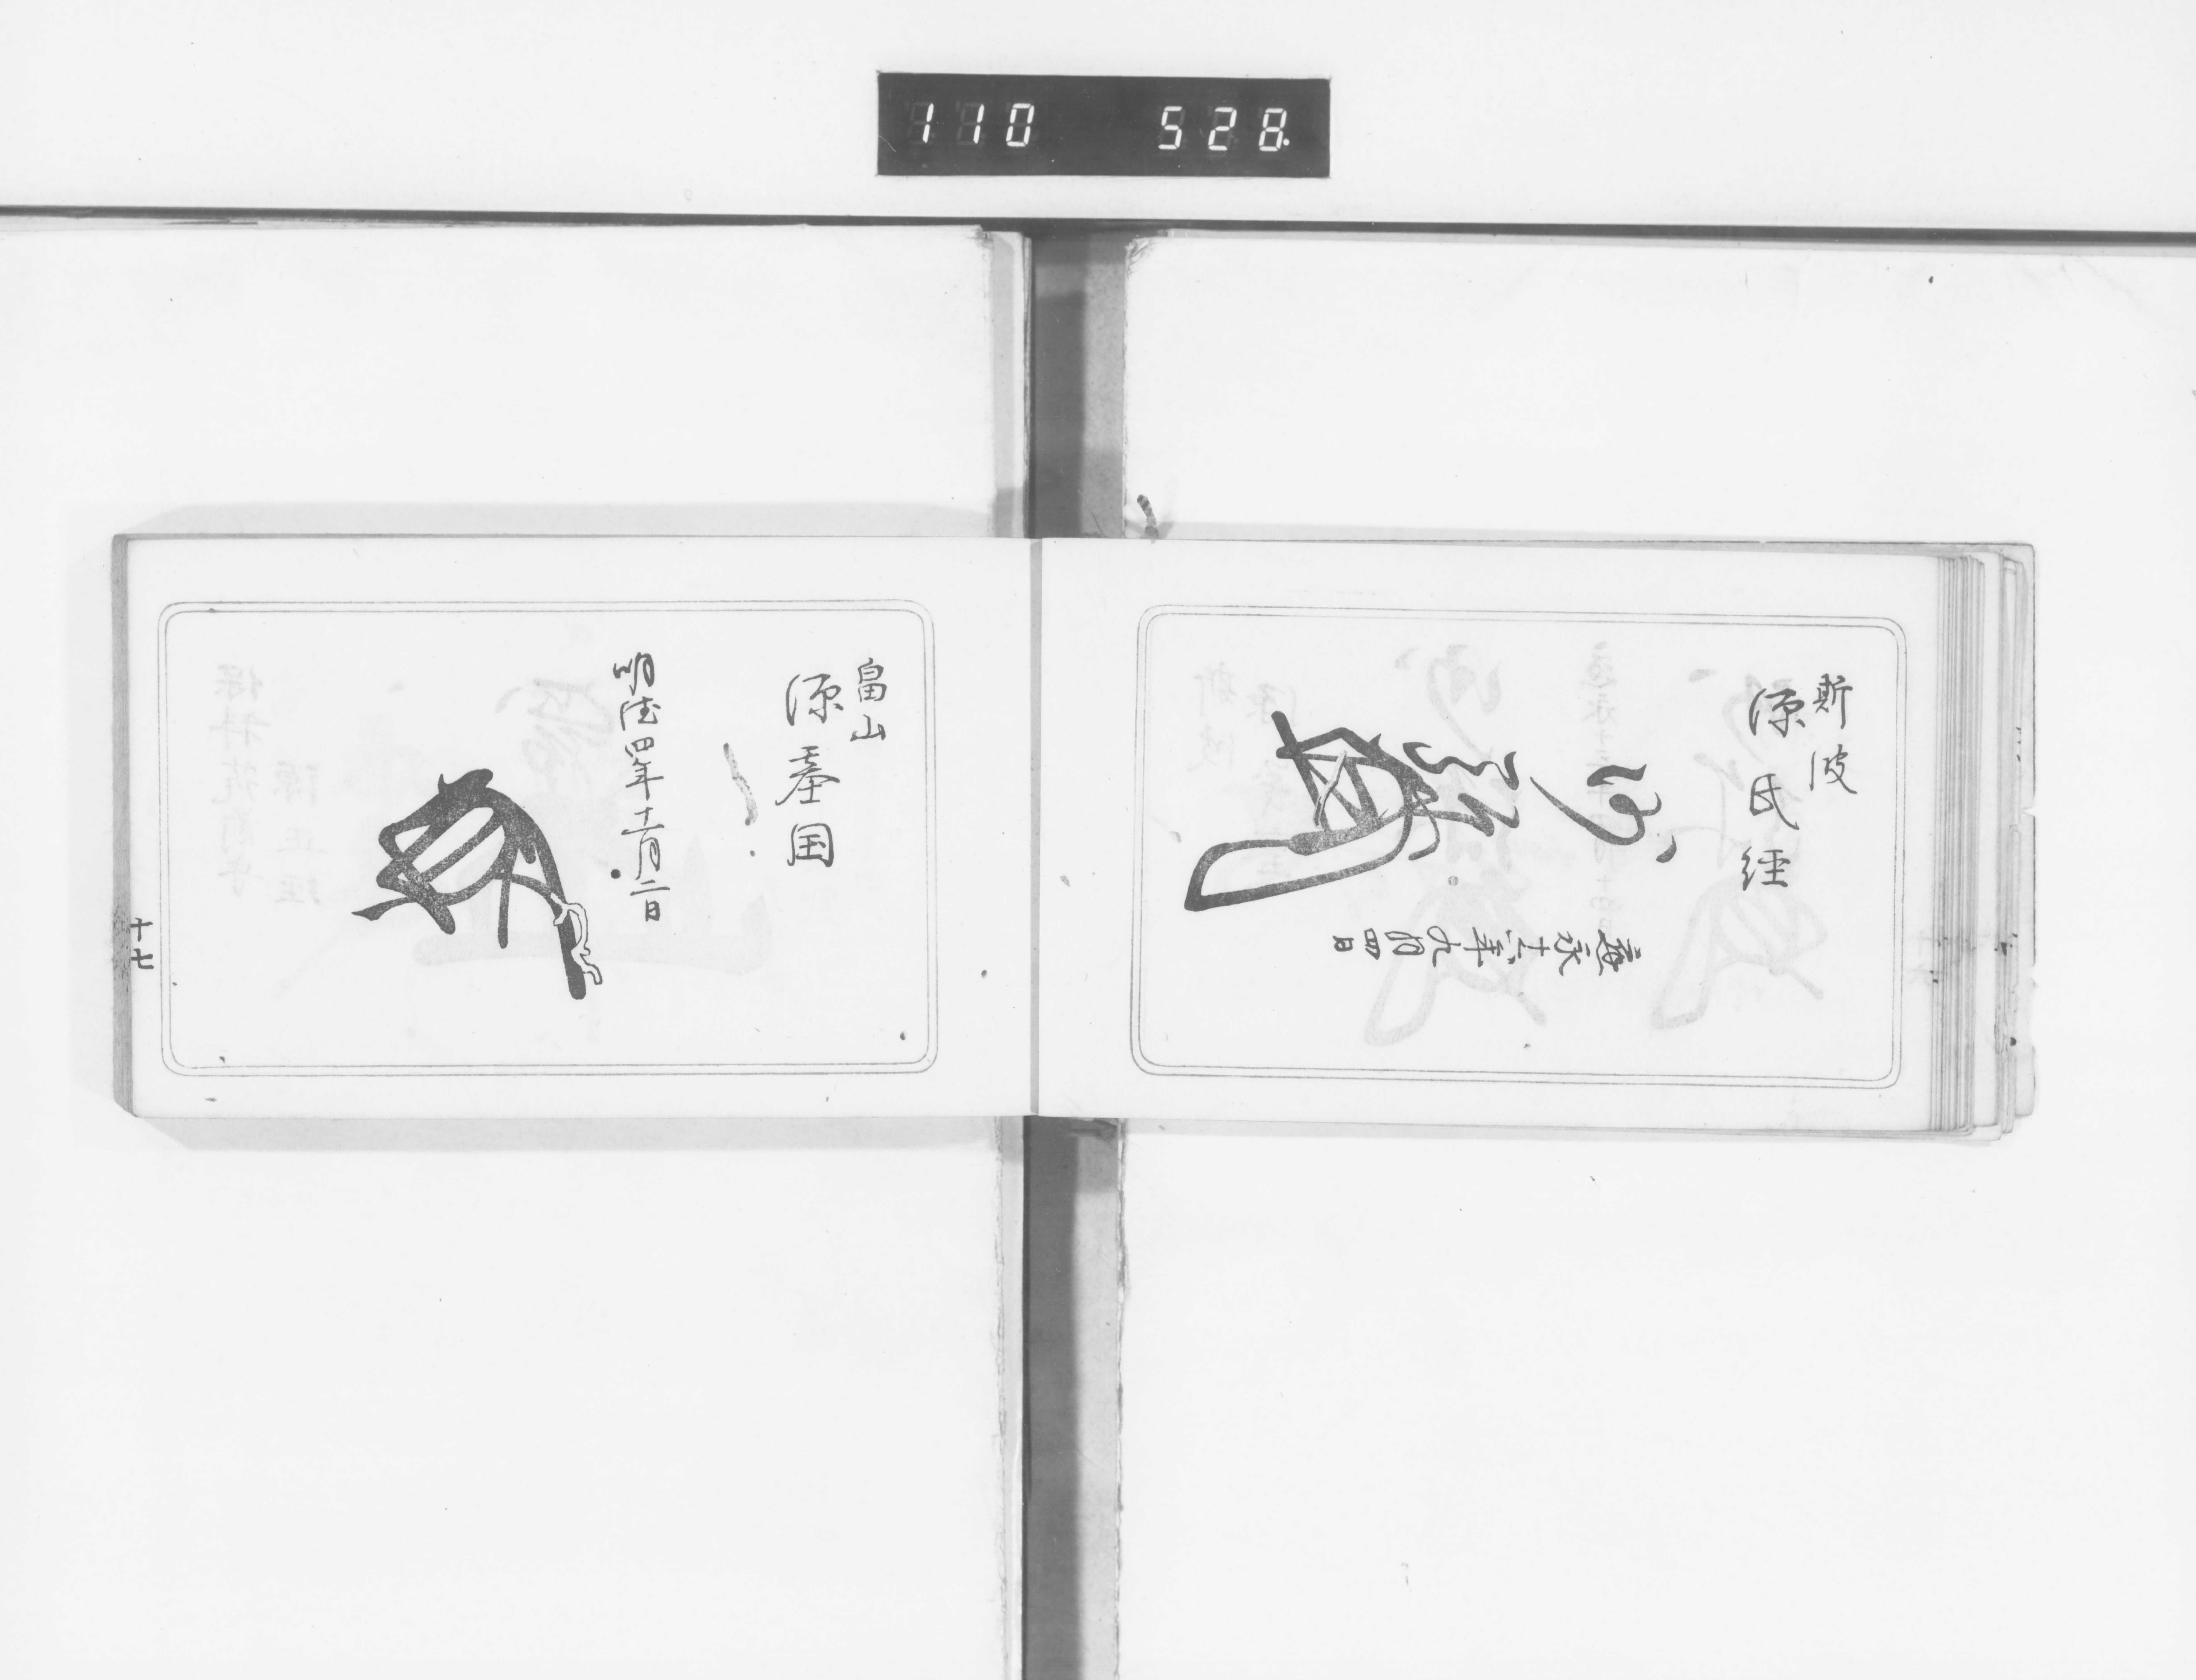 110 528
斯波
源氏経
沙弥
応永十六年九月四日
畠山
源基国
明徳四年十一月二日
十七